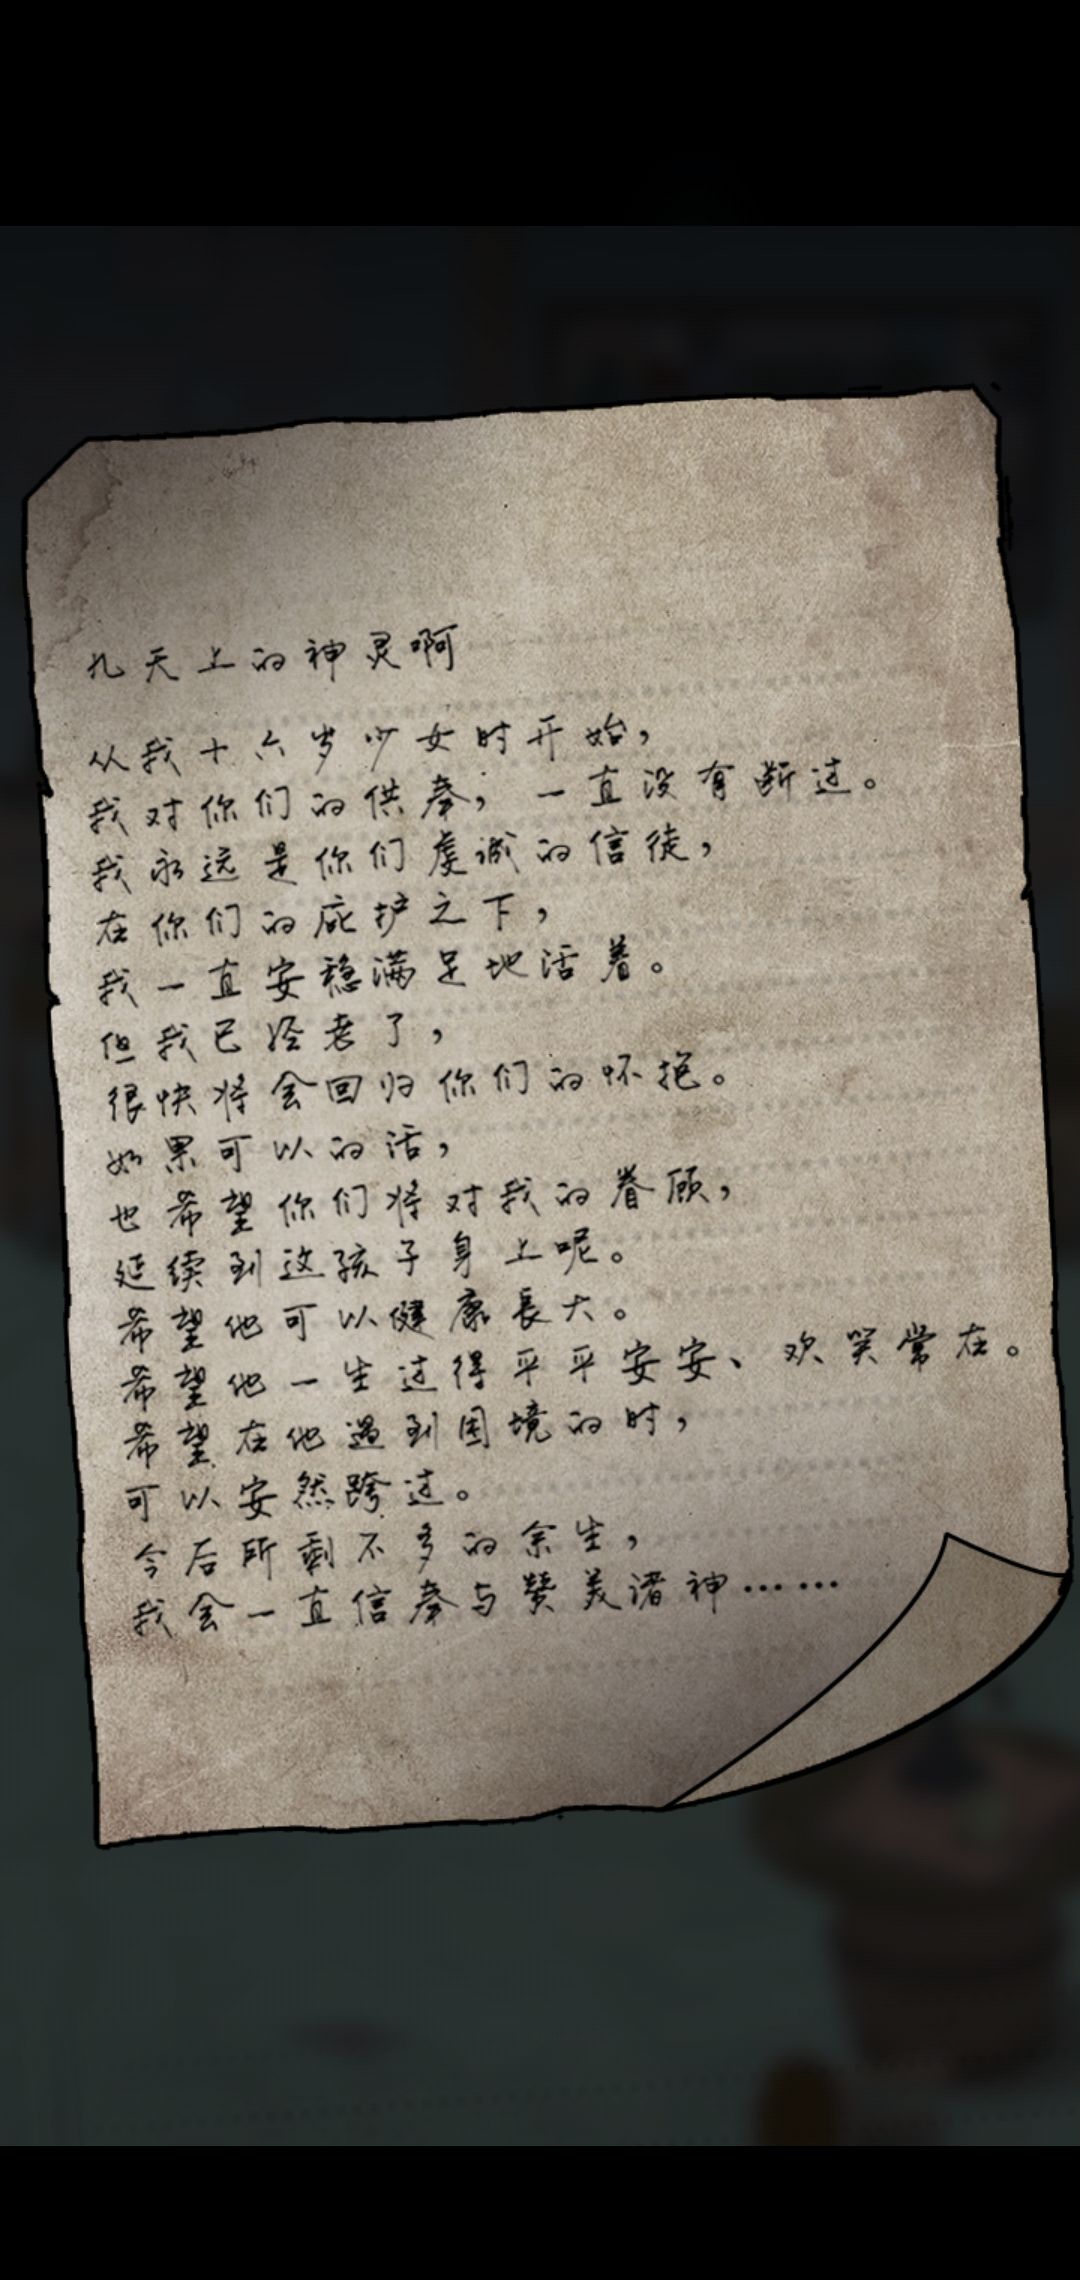 九天上的神灵啊
从我十六岁少女时开始，
我对你们的供奉，一直没有断过。
我永远是你们虔诚的信徒，
在你们的庇护之下，
我一直安稳满足地活着。
但我已经老了，
很快将会回归你们的怀抱。
如果可以的话，
也希望你们将对我的眷顾，
延续到这孩子身上呢。
希望他可以健康长大。
希望他一生过得平平安安、欢笑常在。
希望在他遇到困境的时，
可以安然跨过。
今后所剩不多的余生，
我会一直信奉与赞美诸神……